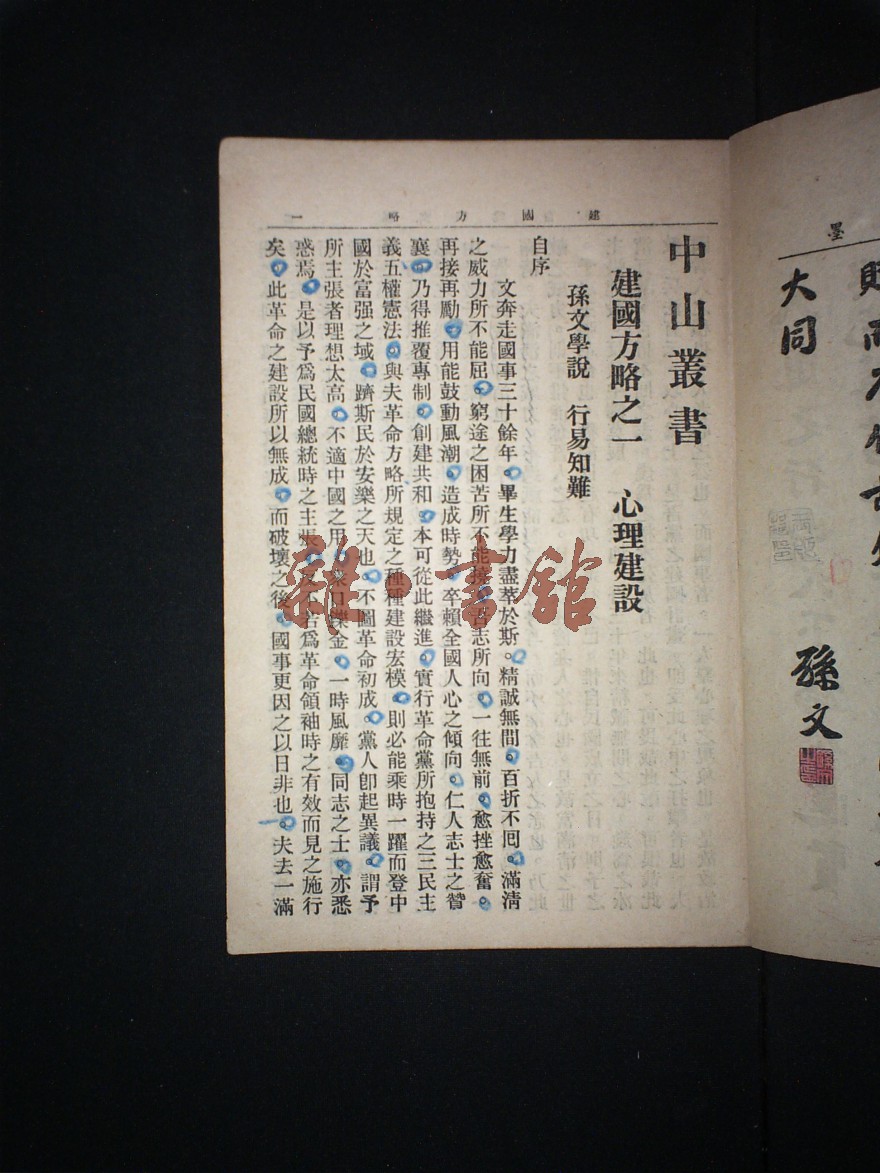 墨
大同
孫文
建國方略 一
中山叢書
建國方略之一 心理建設
孫文學說 行易知難
自序
文奔走國事三十餘年。畢生學力盡萃於斯。精誠無間。百折不囘。滿清
之威力所不能屈。窮途之困苦所不能撓。吾志所向。一往無前。愈挫愈奮。
再接再勵。用能鼓動風潮。造成時勢。卒賴全國人心之傾向。仁人志士之贊
襄。乃得推覆專制。創建共和。本可從此繼進。實行革命黨所抱持之三民主
義、五權憲法。與夫革命方略所規定之種種建設宏模。則必能乘時一躍而登中
國於富强之域。躋斯民於安樂之天也。不圖革命初成。黨人卽起異議。謂予
所主張者理想太高。不適中國之用。衆口鑠金。一時風靡。同志之士。亦悉
惑焉。是以予爲民國總統時之主張。反不若爲革命領袖時之有效而見之施行
矣。此革命之建設所以無成。而破壞之後。國事更因之以日非也。夫去一滿
雜·書館